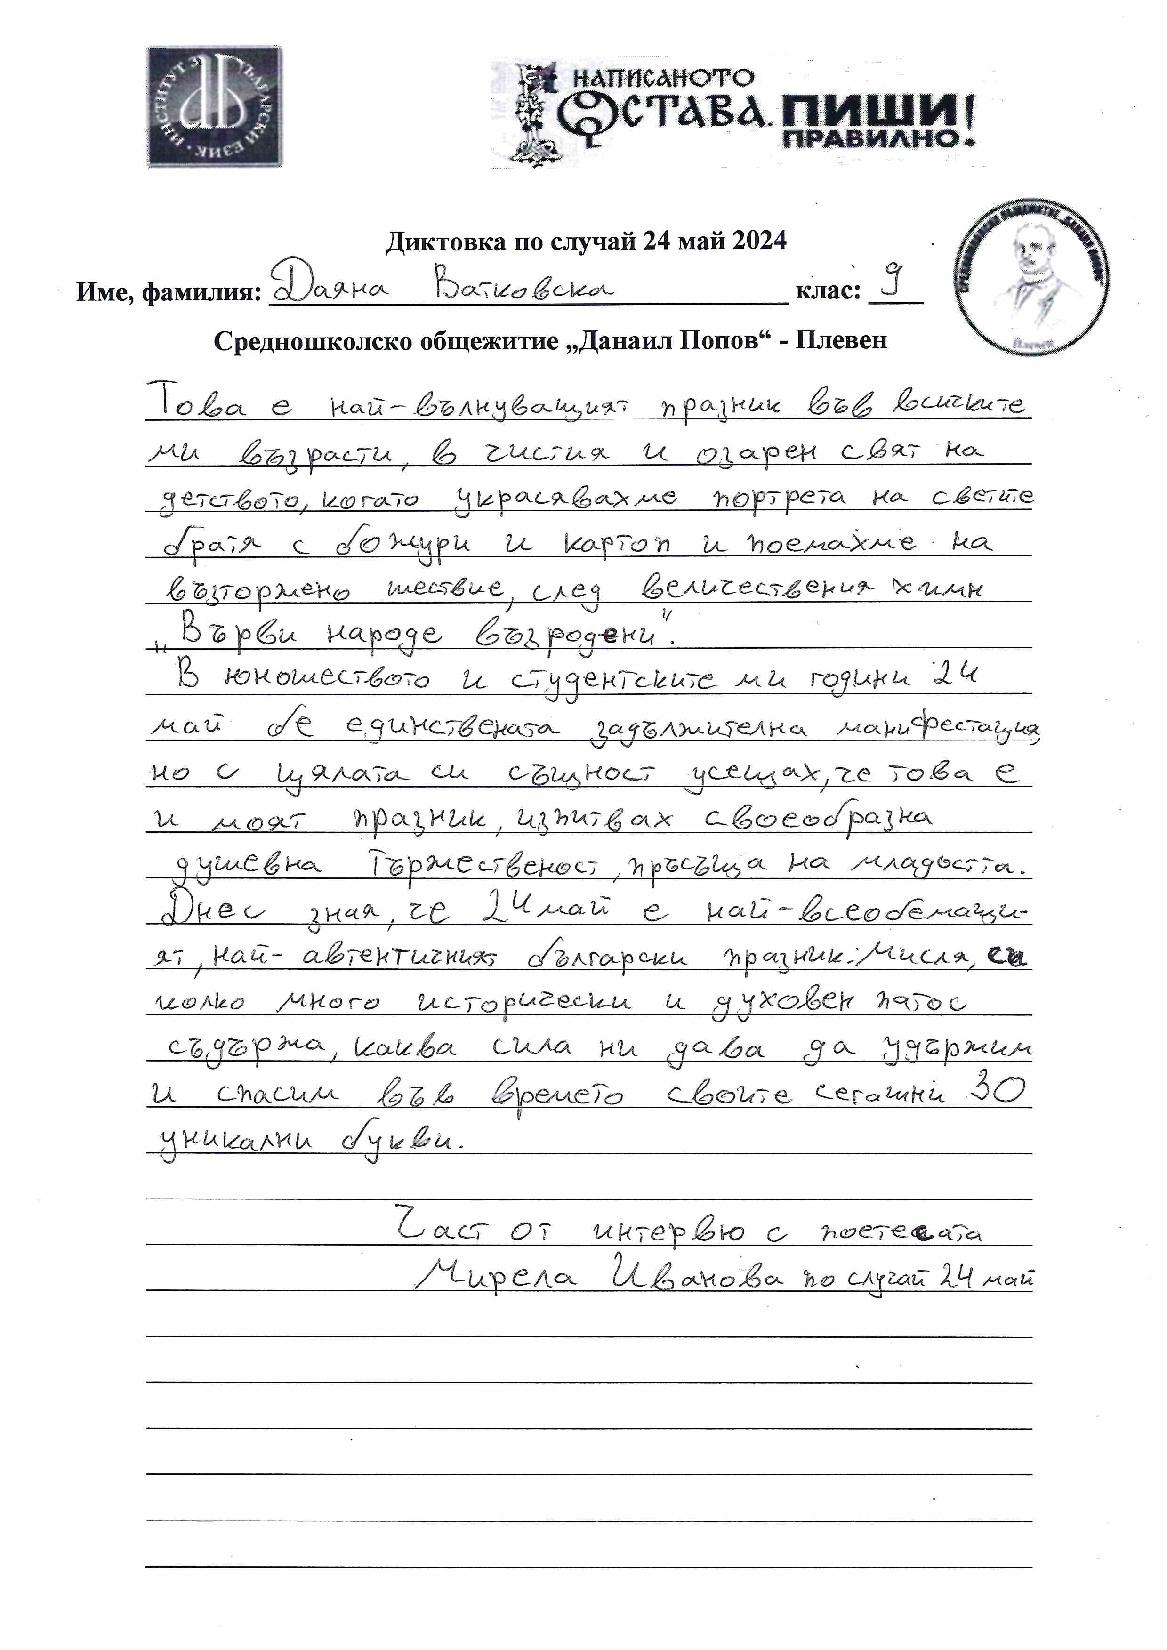 ИНСТИТУТ ЗА БЪЛГАРСКИ ЕЗИК
НАПИСАНОТО
ОСТАВА. ПИШИ!
ПРАВИЛНО!
Диктовка по случай 24 май 2024
Име, фамилия: Даяна Ватковска клас: 9
Средношколско общежитие „Данаил Попов“ - Плевен
Това е най-вълнуващият празник във всичките
ми възрасти, в чистия и озарен свят на
детството, когато украсявахме портрета на светите
братя с божури и картоп и поемахме на
възторжено шествие, след величествения химн
„Върви народе възродени“.
В юношеството и студентските ми години 24
май бе единствената задължителна манифестация
но с цялата си същност усещах, че това е
и моят празник, изпитвах своеобразна
душевна тържественост, присъща на младостта.
Днес зная, че 24 май е най-всеобемащи-
ят, най-автентичният български празник. Мисля, си
колко много исторически и духовен патос
съдържа, каква сила ни дава да удържим
и спасим във времето своите сегашни 30
уникални букви.
Част от интервю с поетесата
Мирела Иванова по случай 24 май